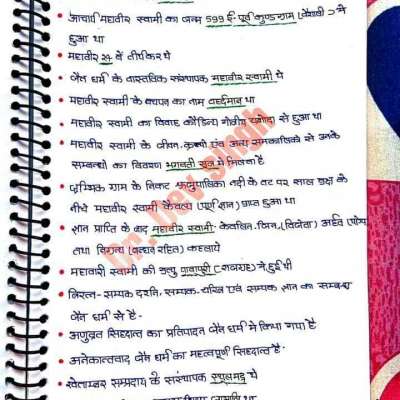 आचार्य महावीर स्वामी का जन्म 599 ई. पूर्व कुण्डग्राम (वैशाली) में
हुआ था
महावीर 24 वें तीर्थकर थे
जैन धर्म के वास्तविक संस्थापक महावीर स्वामी थे
महावीर स्वामी के बचपन का नाम वर्द्धमान था
महावीर स्वामी का विवाह कौडिन्य गोत्रीय यशोदा से हुआ था
महावीर स्वामी के जीवन-कृत्यों एवं अन्य समकालिकों से उनके
सम्बन्धों का विवरण भगवती सूत्र में मिलता है
जृम्भिक ग्राम के निकट ऋजुपालिका नदी के तट पर साल वृक्ष के
नीचे महावीर स्वामी कैवल्य (पूर्ण ज्ञान) प्राप्त हुआ था
ज्ञान प्राप्ति के बाद महावीर स्वामी- केवलिन, जिन, (विजेता) अर्हत (योग्य
तथा निग्रन्थ (बन्धन रहित) कहलाये
महावारी स्वामी की मृत्यु पावापुरी (राजग्रह) में हुई थी
त्रिरत्न- सम्यक दर्शन, सम्यक-चरित्र एवं सम्यक ज्ञान का सम्बन्ध
जैन धर्म से है-
अणुव्रत सिद्धान्त का प्रतिपादन जैन धर्म में किया गया है
अनेकान्तवाद जैन धर्म का महत्वपूर्ण सिद्धान्त है-
श्वेताम्बर सम्प्रदाय के संस्थापक स्थूलभद्र थे
Dr. Dev singh